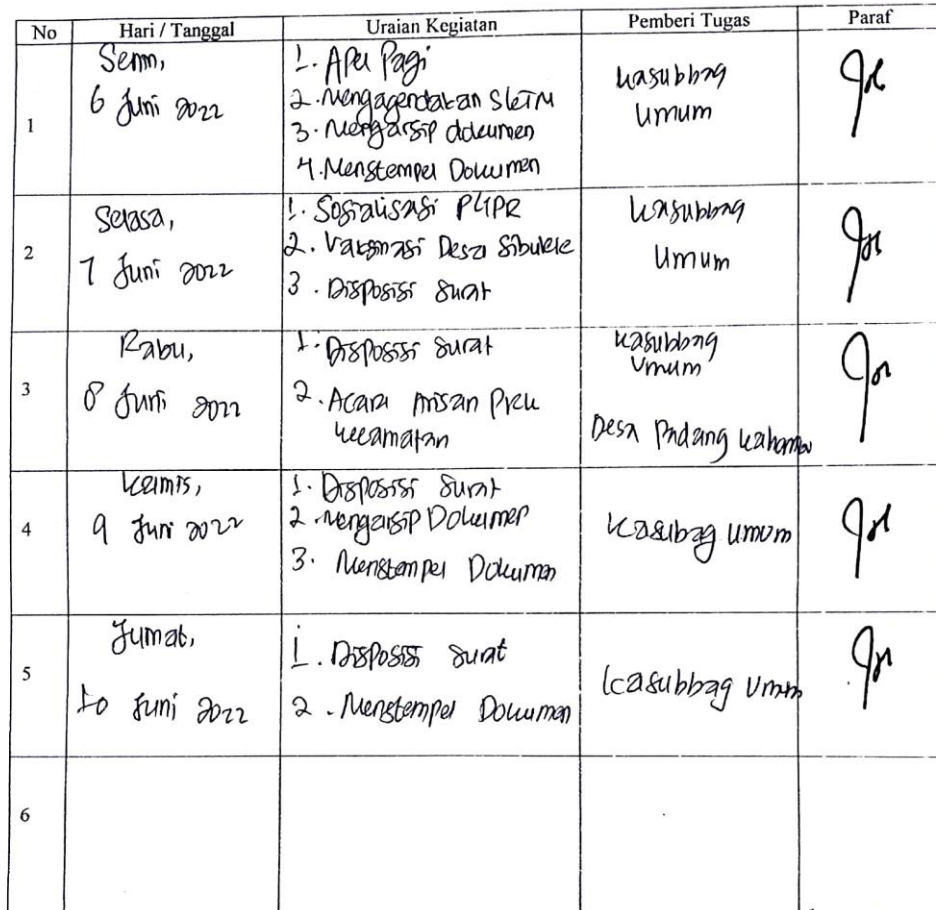 No Hari / Tanggal Uraian Kegiatan Pemberi Tugas Paraf
1
Senin,
6 Juni 2022
1. Apel Pagi
2. Mengagendakan SKTM
3. Mengarsip dokumen
4. Menstempel Dokumen
Kasubbag
Umum
2
Selasa,
7 Juni 2022
1. Sosialisasi
2. Vaksinasi Desa Sibulele
3. Disposisi Surat
Kasubbag
Umum
3
Rabu,
8 Juni 2022
1. Disposisi Surat
2. Acara Arisan PKK
Kecamatan
Kasubbag
Umum
Desa Padang
4
Kamis,
9 Juni 2022
1. Disposisi Surat
2. Mengarsip Dokumen
3. Menstempel Dokumen
Kasubag Umum
5
Jumat,
10 Juni 2022
1. Disposisi Surat
2. Menstempel Dokumen
Kasubbag Umum
6